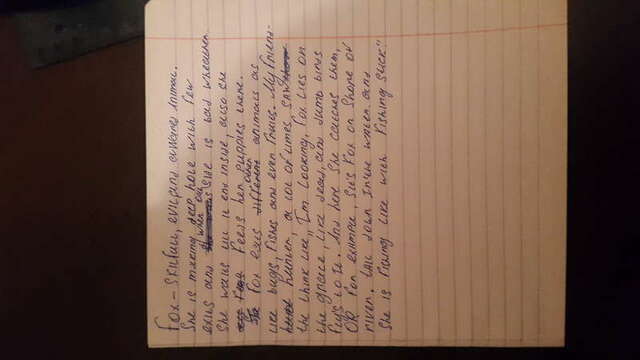 Fox – skilfull, evil and awares animal.
She is making deep hole with few
exits and when out side is bad wheather
She waits till it end inside, also she
feeds her puppies there.
Fox eats other animals as
like bugs, fishes and even fruits. My friend-
hunter, a lot of times, saw
the think like „I'm looking, fox lies on
the grace, like dead, and dumb birds
fly's to it. And here she catches them,
OR for example, sit's Fox on shore of
river. tail down in the water. and
She is fishing like with fishing stick"